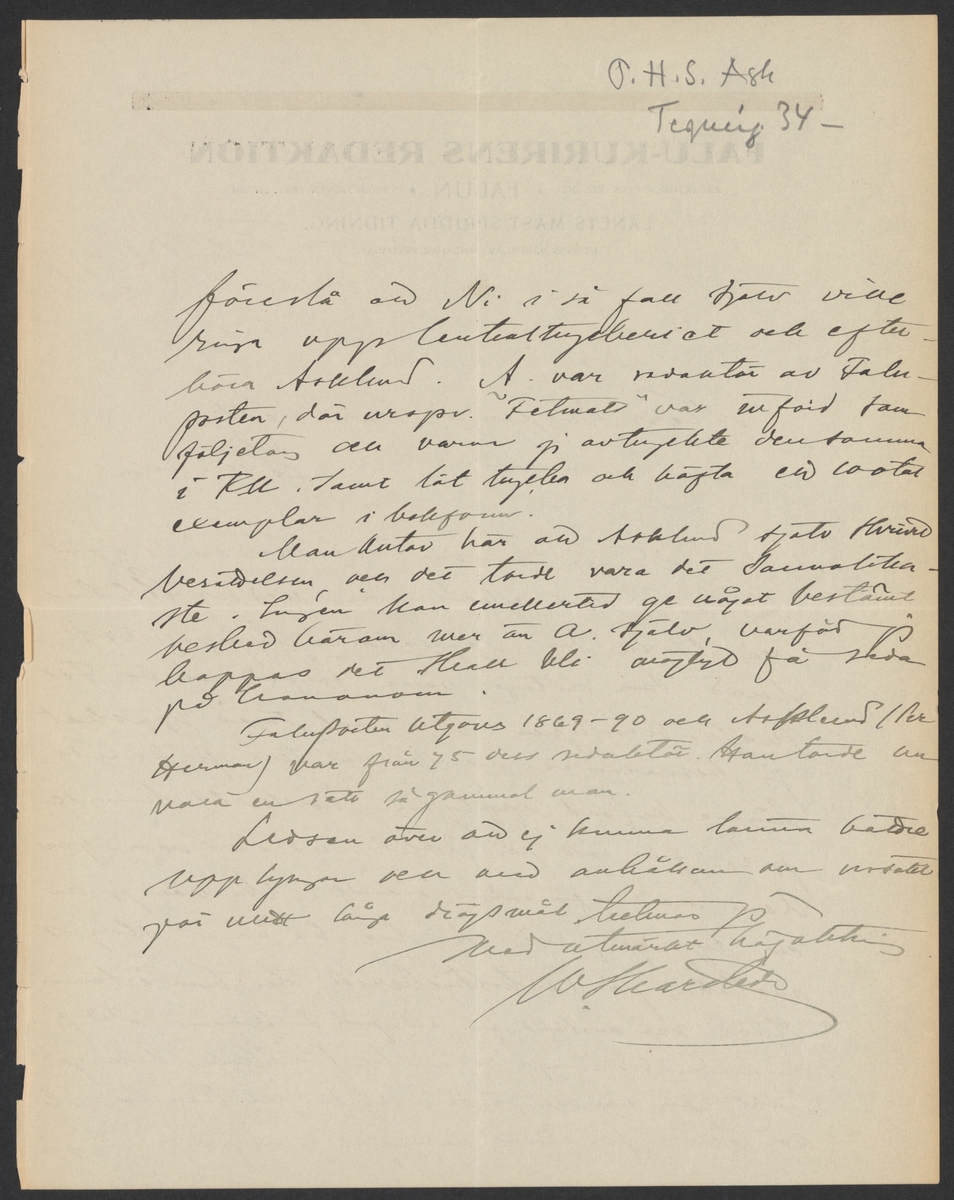 P. H. S. Ask
Tegnérg. 34 –
föreslå att Ni i så fall själv ville
ringa upp Centraltryckeriet och efter-
höra Asklund. A. var redaktör av Falu-
posten, där urspr. "Fetmats" var införd som
följetong och varur vi avtryckte densamma
i F.K. samt lät trycka och häfta ett 100tal
exemplar i bokform.
Man antar här att Asklund själv skrivit
berättelsen, och det torde vara det sannolika-
ste. Ingen kan emellertid ge något bestämt
besked härom mer än A. själv, varför jag
hoppas det skall bli möjligt få reda
på honom.
Faluposten utgavs 1869-90 och Asklund (Per
Herman) var från 75 dess redaktör. Han torde nu
vara en rätt så gammal man.
Ledsen över att ej kunna lämna bättre
upplysningar och med anhållan om ursäkt
för mitt långa dröjsmål tecknas
Med utmärkt högaktning
W. Skarstedt
FALU-KURIRENS REDAKTION
FALUN
LÄNETS MEST SPRIDDA TIDNING